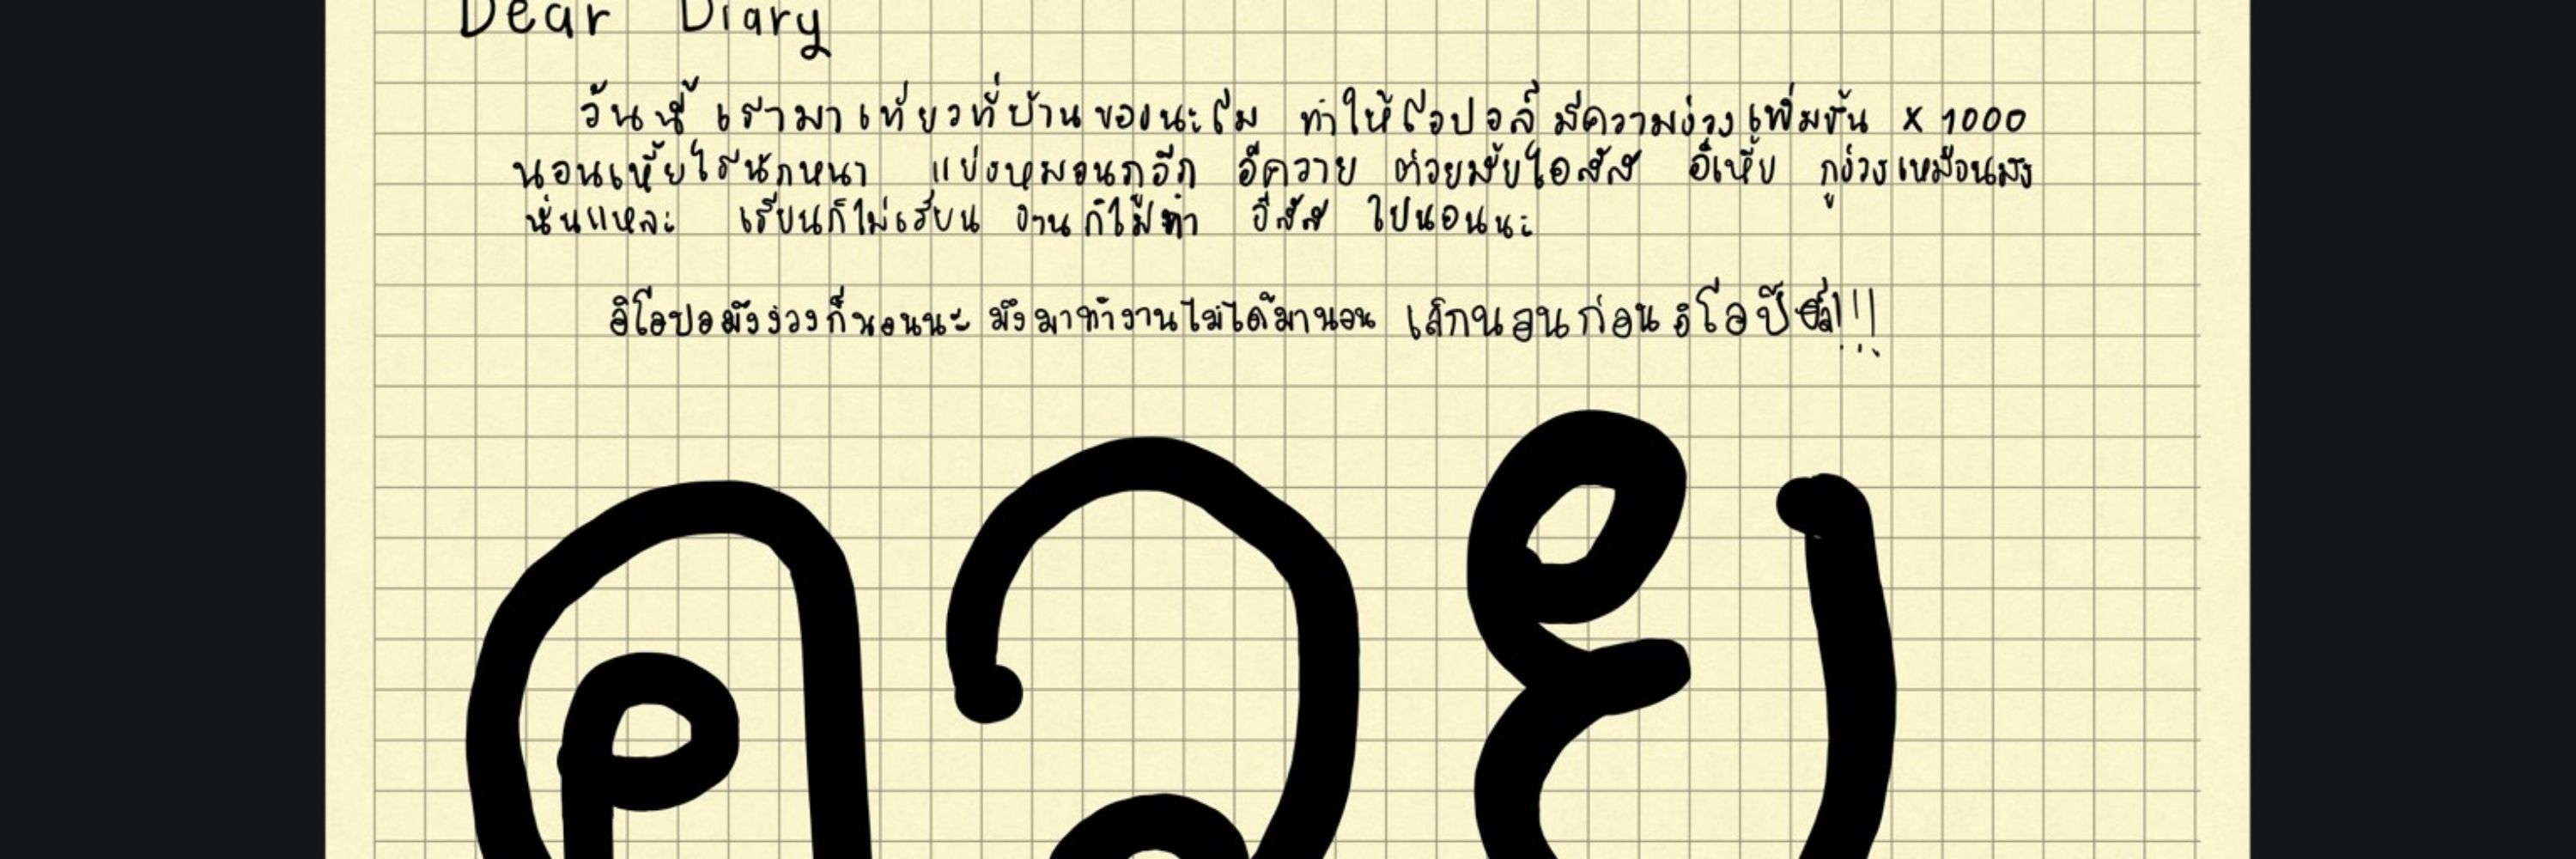 Dear Diary
วันนี้ เรามาเที่ยวที่บ้านของนะโม ทำให้โอปอล์มีความง่วงเพิ่มขึ้น x 1000
นอนเหี้ยไรนักหนา แย่งหมอนกูอีก อีควาย ต่อยมั้ยไอสัส อีเหี้ย กูง่วงเหมือนมึง
นั่นแหละ เรียนก็ไม่เรียน งานก็ไม่ทำ อีสัส ไปนอนนะ
อิโอปอมึงง่วงก็นอนนะ มึงมาทำงานไม่ได้มานอน เลิกนอนก่อนอิโอปี!!!
ควย